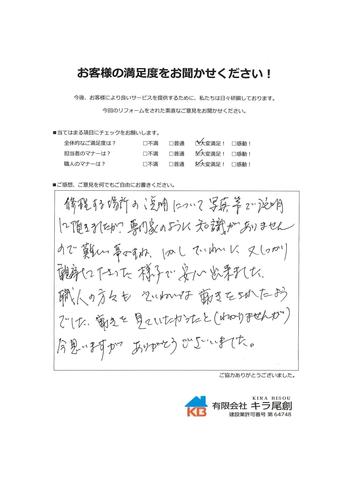 お客様の満足度をお聞かせください！
今後、お客様により良いサービスを提供するために、私たちは日々研鑽しております。
今回のリフォームをされた素直なご意見をお聞かせください。
■当てはまる項目にチェックをお願いします。
全体的なご満足度は？ □不満 □普通 ☑大変満足！ □感動！
担当者のマナーは？ □不満 □普通 ☑大変満足！ □感動！
職人のマナーは？ □不満 □普通 ☑大変満足！ □感動！
■ご感想、ご意見を何でもご自由にお書きください。
修理する場所の説明について写真等で説明
に頂きましたが？専門家のように知識がありません
ので難しい事ですね、しかしていねいに又しっかり
して下さった様子で安心出来ました。
職人の方々もていねいな働きをされたよう
でした、働きを見ていたかったと(わかりませんが)
今思いますが ありがとうございました。
ご協力ありがとうございました。
KIRA BISOU
KB 有限会社 キラ尾創
建設業許可番号 第 64748